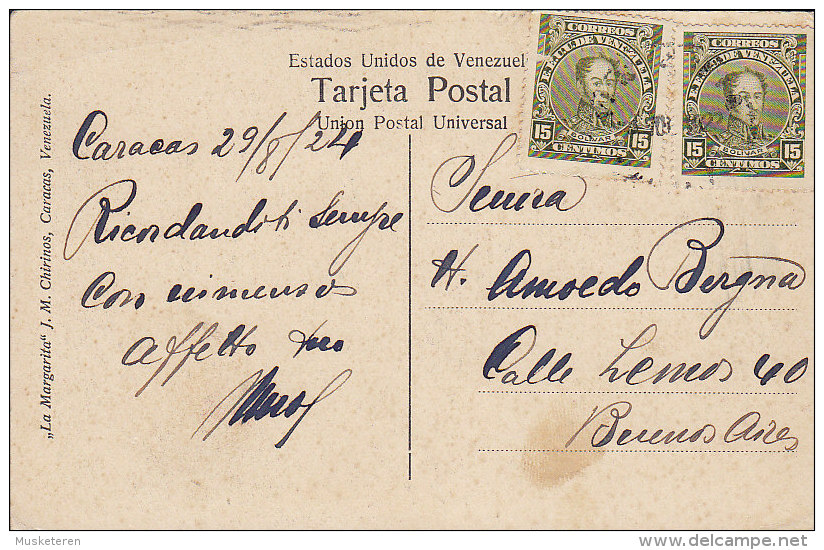 Estados Unidos de Venezuel
Tarjeta Postal
Union Postal Universal
„La Margarita“ J. M. Chirinos, Caracas, Venezuela.
Caracas 29/8/24
Ricordandoti sempre
con immenso
affetto tuo
CORREOS
EE.UU. DE VENEZUELA
BOLIVAR
15 15
CENTIMOS
CORREOS
EE.UU. DE VENEZUELA
BOLIVAR
15 15
CENTIMOS
H. Amoedo Bergna
Calle Lemos 40
Buenos Aires
Musketeren
delcampe.net